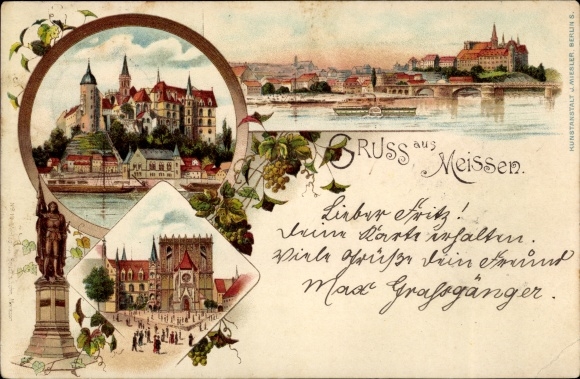 GRUSS aus
MEISSEN.
Lieber Fritz!
Deine Karte erhalten.
Viele Grüße dein Freund
Max Grafsgänger.
KUNSTANSTALT J. MIESLER, BERLIN S.